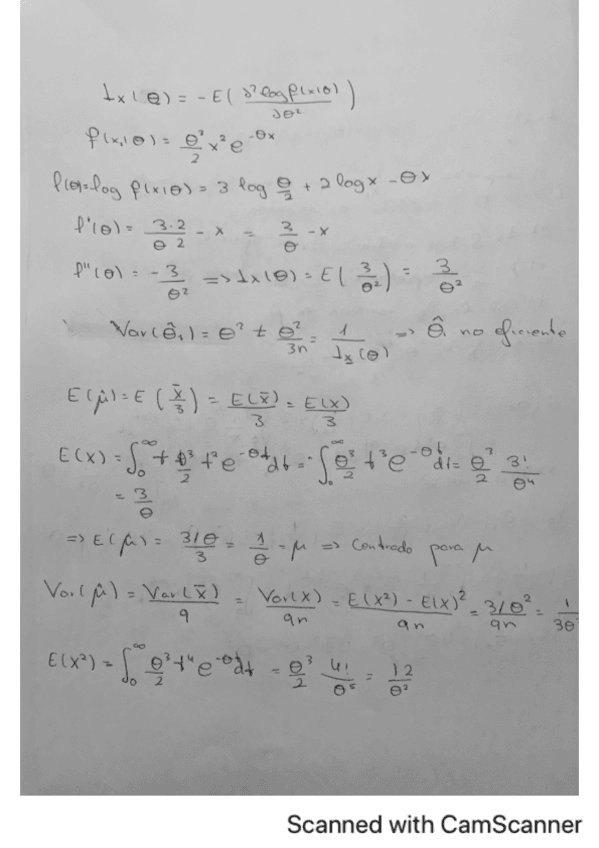 I_x(θ) = -E(∂² log f(x|θ) / ∂θ²)
f(x,θ) = θ³/2 x² e^(-θx)
l(θ)= log f(x|θ) = 3 log θ/2 + 2 log x - θx
l'(θ) = 3·2/θ 2 - x = 3/θ - x
l''(θ) = -3/θ² => I_x(θ) = E(3/θ²) = 3/θ²
Var(θ̂₁) = θ² ± θ²/3n = 1/I_x(θ) => θ̂₁ no eficiente
E(μ̂) = E(x̄/3) = E(x̄)/3 = E(x)/3
E(x) = ∫₀^∞ t θ³/2 t² e^(-θt) dt = ∫₀^∞ θ³/2 t³ e^(-θt) dt = θ³/2 3!/θ⁴
= 3/θ
=> E(μ̂) = 3/θ/3 = 1/θ = μ => Centrado para μ
Var(μ̂) = Var(x̄)/9 = Var(x)/9n = E(x²) - E(x)²/9n = 3/θ²/9n = 1/3θ
E(x²) = ∫₀^∞ θ³/2 t⁴ e^(-θt) dt = θ³/2 4!/θ⁵ = 12/θ²
Scanned with CamScanner